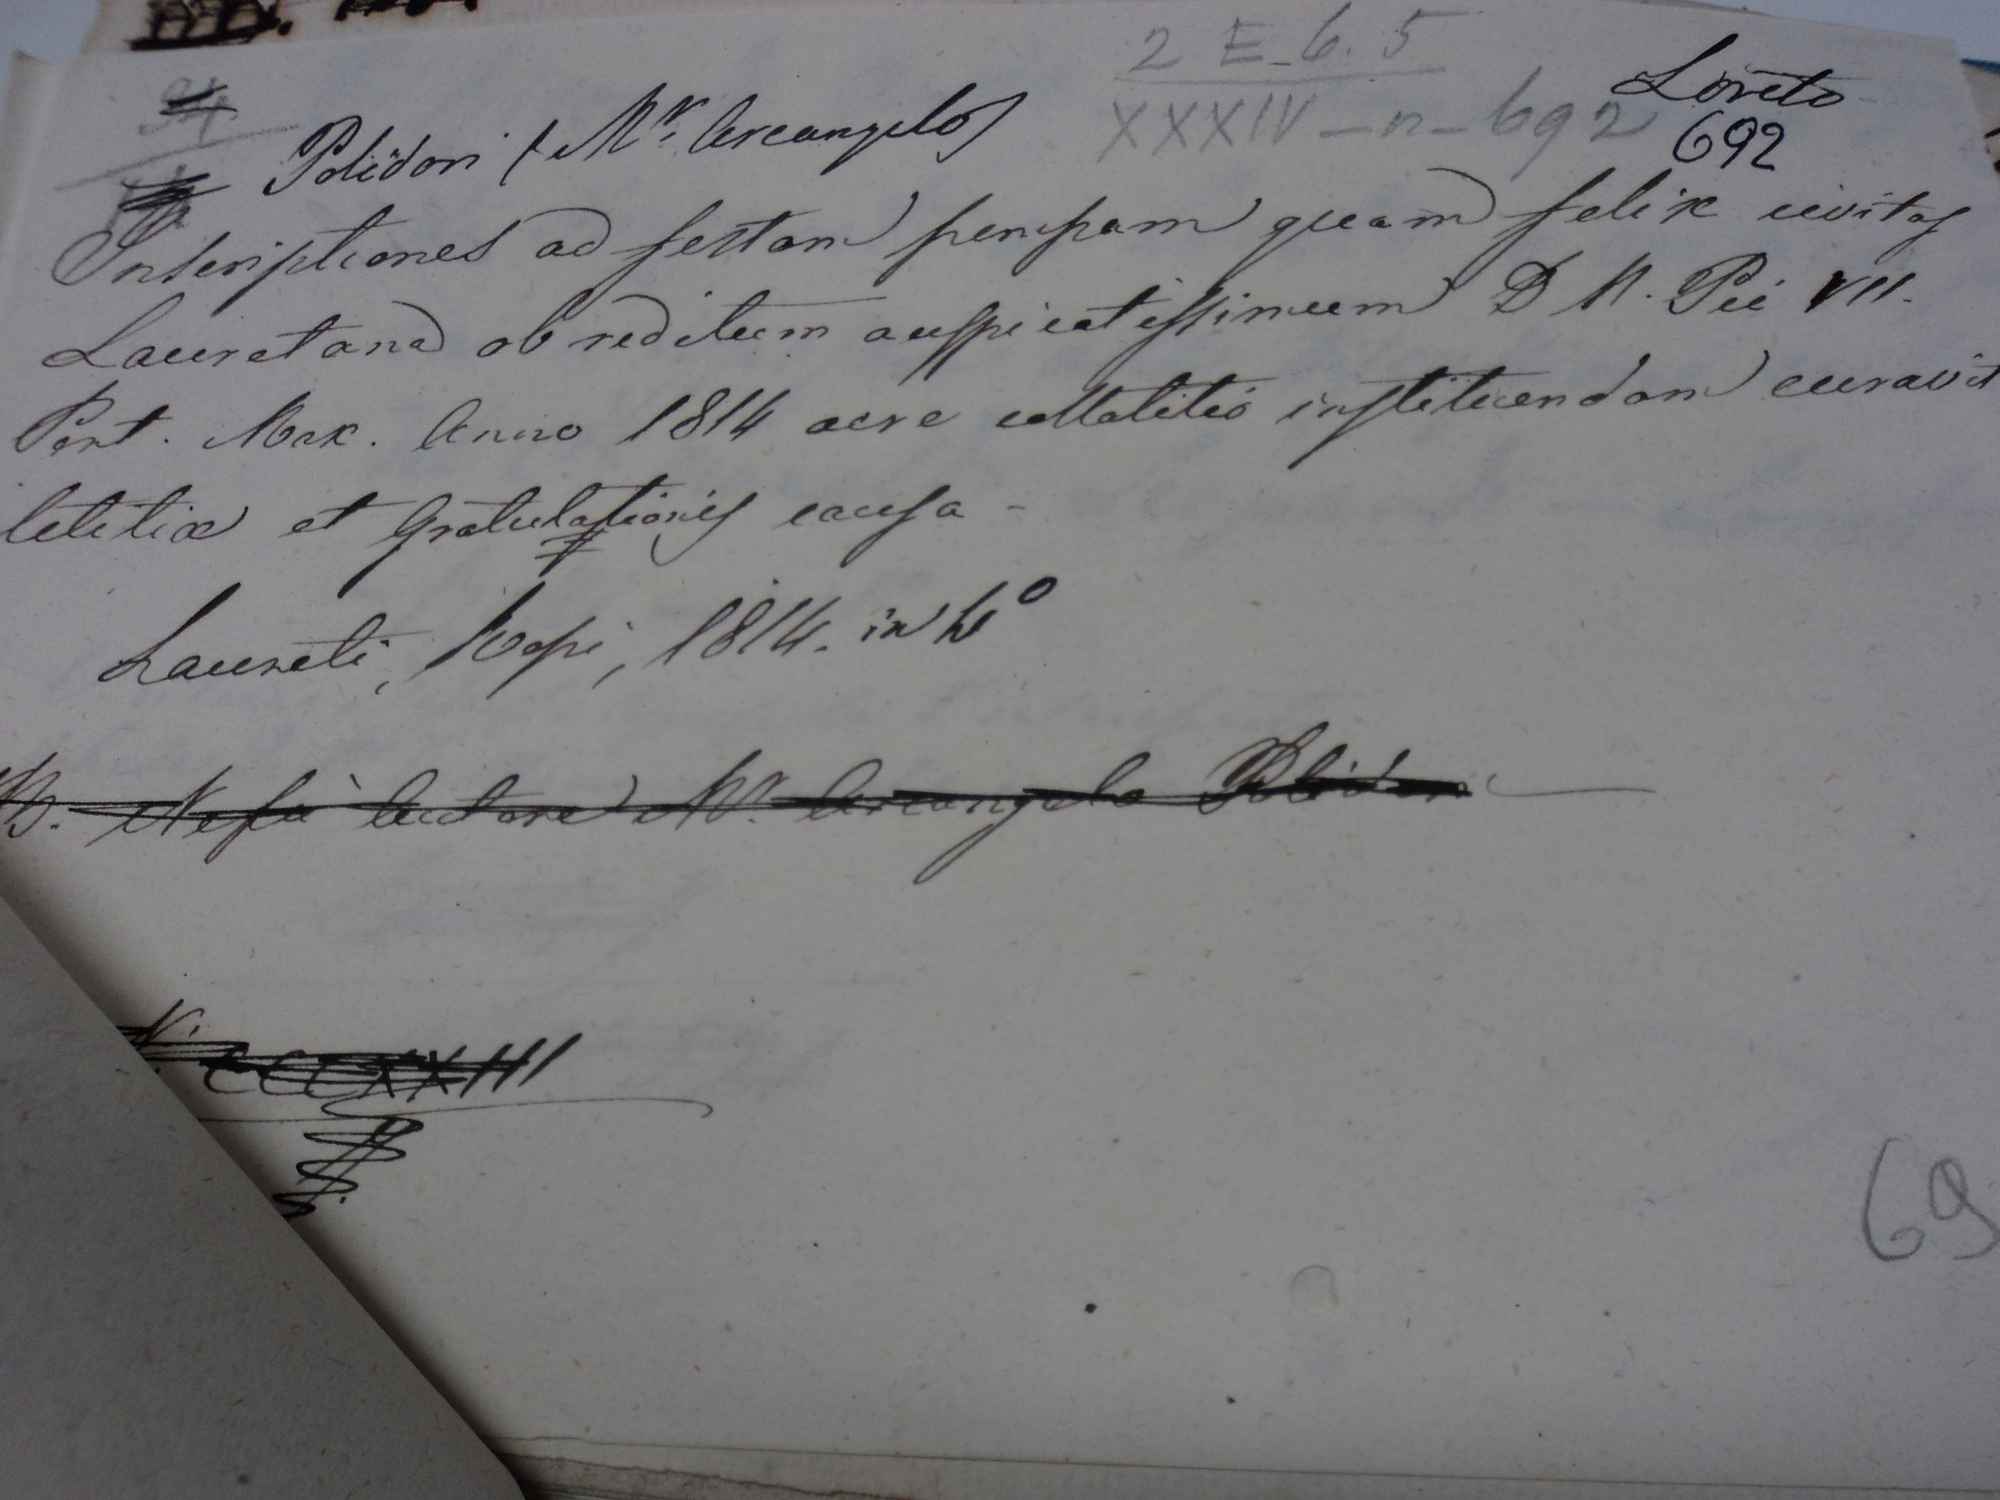 2 E. 6. 5
Loreto
XXXIV - n - 692
692
Polidori (Mr. Arcangelo)
Inscriptiones ad festam pompam quam felix civitas
Lauretana ob reditum auspicatissimum D. N. Pii VII.
Pont. Max. Anno 1814 aere collatitio instituendam curavit
letitiae et gratulationis causa -
Laureti, 1814. in 4º
Ne fu autore Mr. Arcangelo Polidori
N. CCCXXIII
69